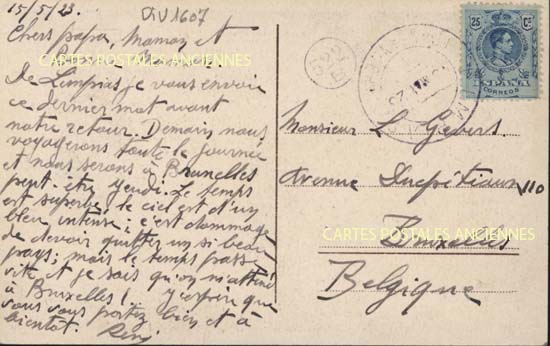 15/5/23. DIV1607
Chers papa, Maman et
CARTES POSTALES ANCIENNES
De Limpias je vous envoie
ce dernier mot avant
notre retour. Demain nous
voyagerons toute la journée
et nous serons à Bruxelles
peut-être Jeudi. Le temps
est superbe le ciel est d'un
bleu intense; c'est dommage
de devoir quitter un si beau
pays; mais le temps passe
vite et je sais qu'on m'attend
à Bruxelles! J'espère que
vous vous portez bien et à
bientôt.
522
E
25 Cs
ESPAÑA
CORREOS
Monsieur L. Gevers
Avenue Ducpétiaux 110
CARTES POSTALES ANCIENNES
Bruxelles
Belgique